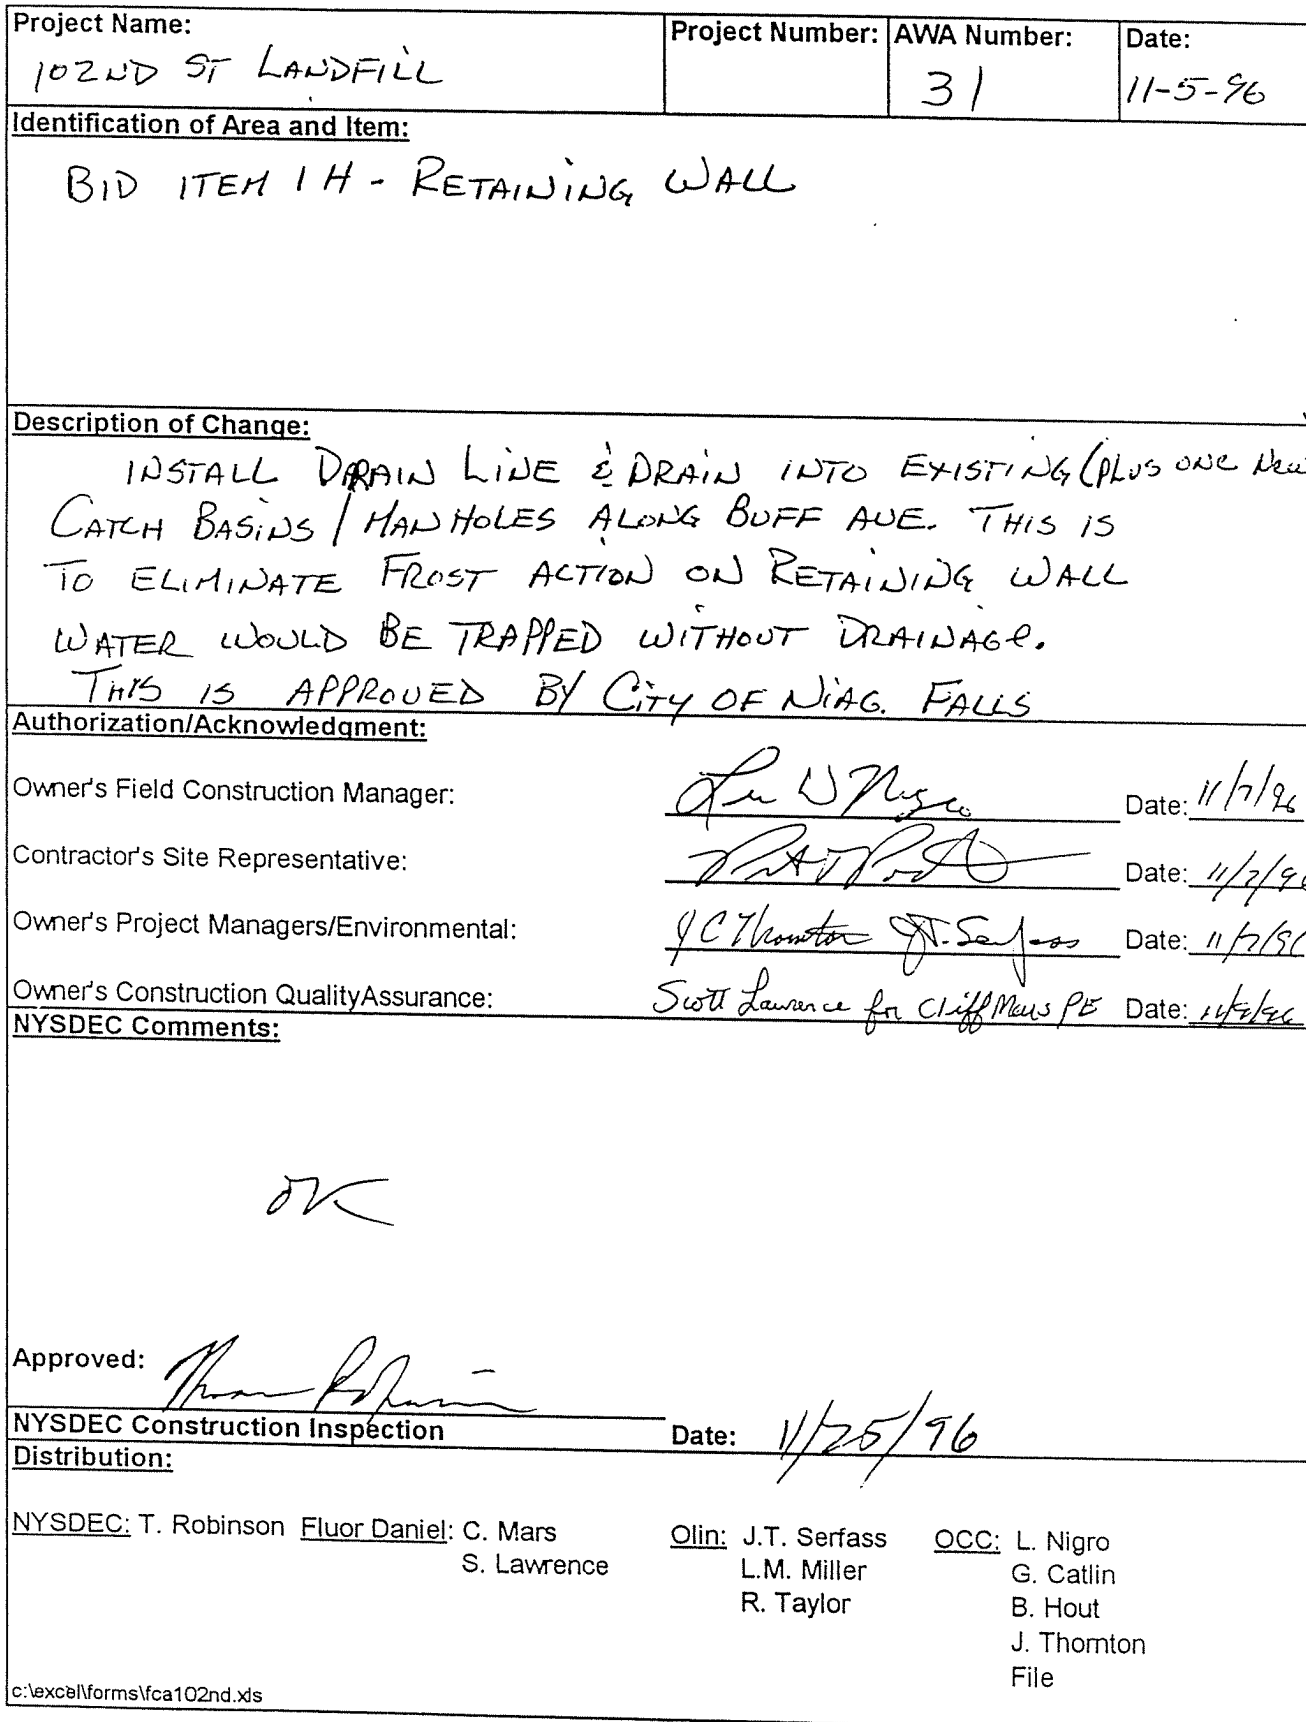 Project Name:
102ND ST LANDFILL
Project Number:
AWA Number:
31
Date:
11-5-96
Identification of Area and Item:
BID ITEM 1H - RETAINING WALL
Description of Change:
INSTALL DRAIN LINE & DRAIN INTO EXISTING (PLUS ONE New
CATCH BASINS / MANHOLES ALONG BUFF AVE. THIS IS
TO ELIMINATE FROST ACTION ON RETAINING WALL
WATER WOULD BE TRAPPED WITHOUT DRAINAGe.
THIS IS APPROVED BY CITY OF NIAG. FALLS
Authorization/Acknowledgment:
Owner's Field Construction Manager: Date: 11/7/96
Contractor's Site Representative: Date: 11/7/96
Owner's Project Managers/Environmental: J C Thornton J.T. Serfass Date: 11/7/96
Owner's Construction QualityAssurance: Scott Lawrence for Cliff Mars PE Date:
NYSDEC Comments:
OK
Approved:
NYSDEC Construction Inspection Date: 11/25/96
Distribution:
NYSDEC: T. Robinson Fluor Daniel: C. Mars Olin: J.T. Serfass OCC: L. Nigro
S. Lawrence L.M. Miller G. Catlin
R. Taylor B. Hout
J. Thornton
File
c:\excel\forms\fca102nd.xls